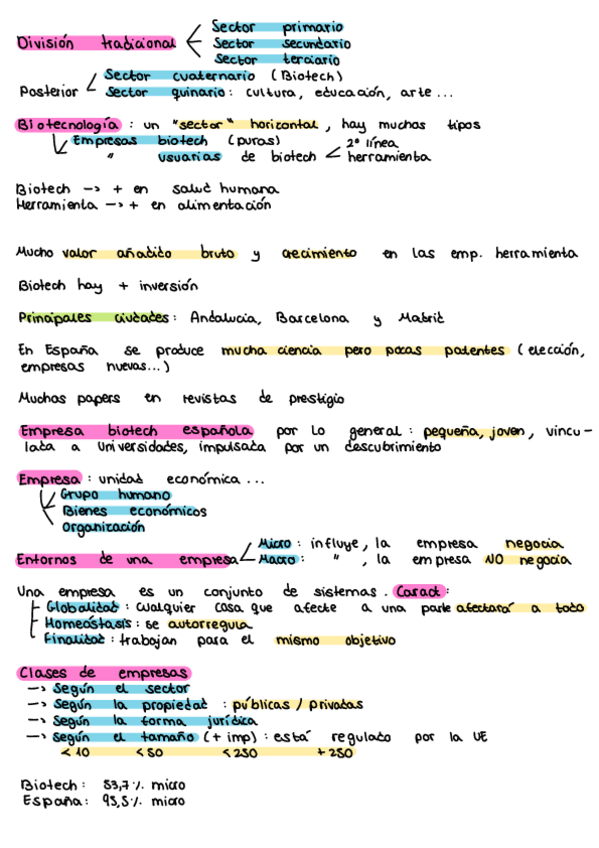 Sector primario
División tradicional < Sector secundario
Sector terciario
Sector cuaternario (Biotech)
Posterior < Sector quinario: cultura, educación, arte...
Biotecnología: un "sector" horizontal, hay muchos tipos
Empresas biotech (puras) 2º línea
" usuarias de biotech < herramienta
Biotech -> + en salud humana
Herramienta -> + en alimentación
Mucho valor añadido bruto y crecimiento en las emp. herramienta
Biotech hay + inversión
Principales ciudades: Andalucia, Barcelona y Madrid
En España se produce mucha ciencia pero pocas patentes (elección,
empresas nuevas...)
Muchos papers en revistas de prestigio
Empresa biotech española por lo general: pequeña, joven, vincu-
lada a Universidades, impulsada por un descubrimiento
Empresa: unidad económica...
Grupo humano
Bienes económicos
Organización
Micro: influye, la empresa negocia
Entornos de una empresa < Macro: " , la empresa NO negocia
Una empresa es un conjunto de sistemas. Caract:
Globalidad: cualquier cosa que afecte a una parte afectará a todo
Homeóstasis: se autorregula
Finalidad: trabajan para el mismo objetivo
Clases de empresas
-> Según el sector
-> Según la propiedad: públicas / privadas
-> Según la forma jurídica
-> Según el tamaño (+ imp): está regulado por la UE
<10 <50 <250 +250
Biotech: 53,7% micro
España: 93,5% micro